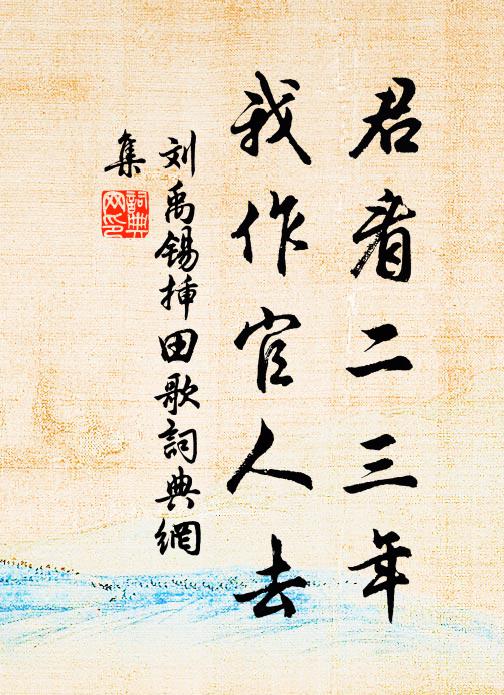 君看二三年
我作官人去
刘禹锡挿田歌詞典網
集
詞典
网印